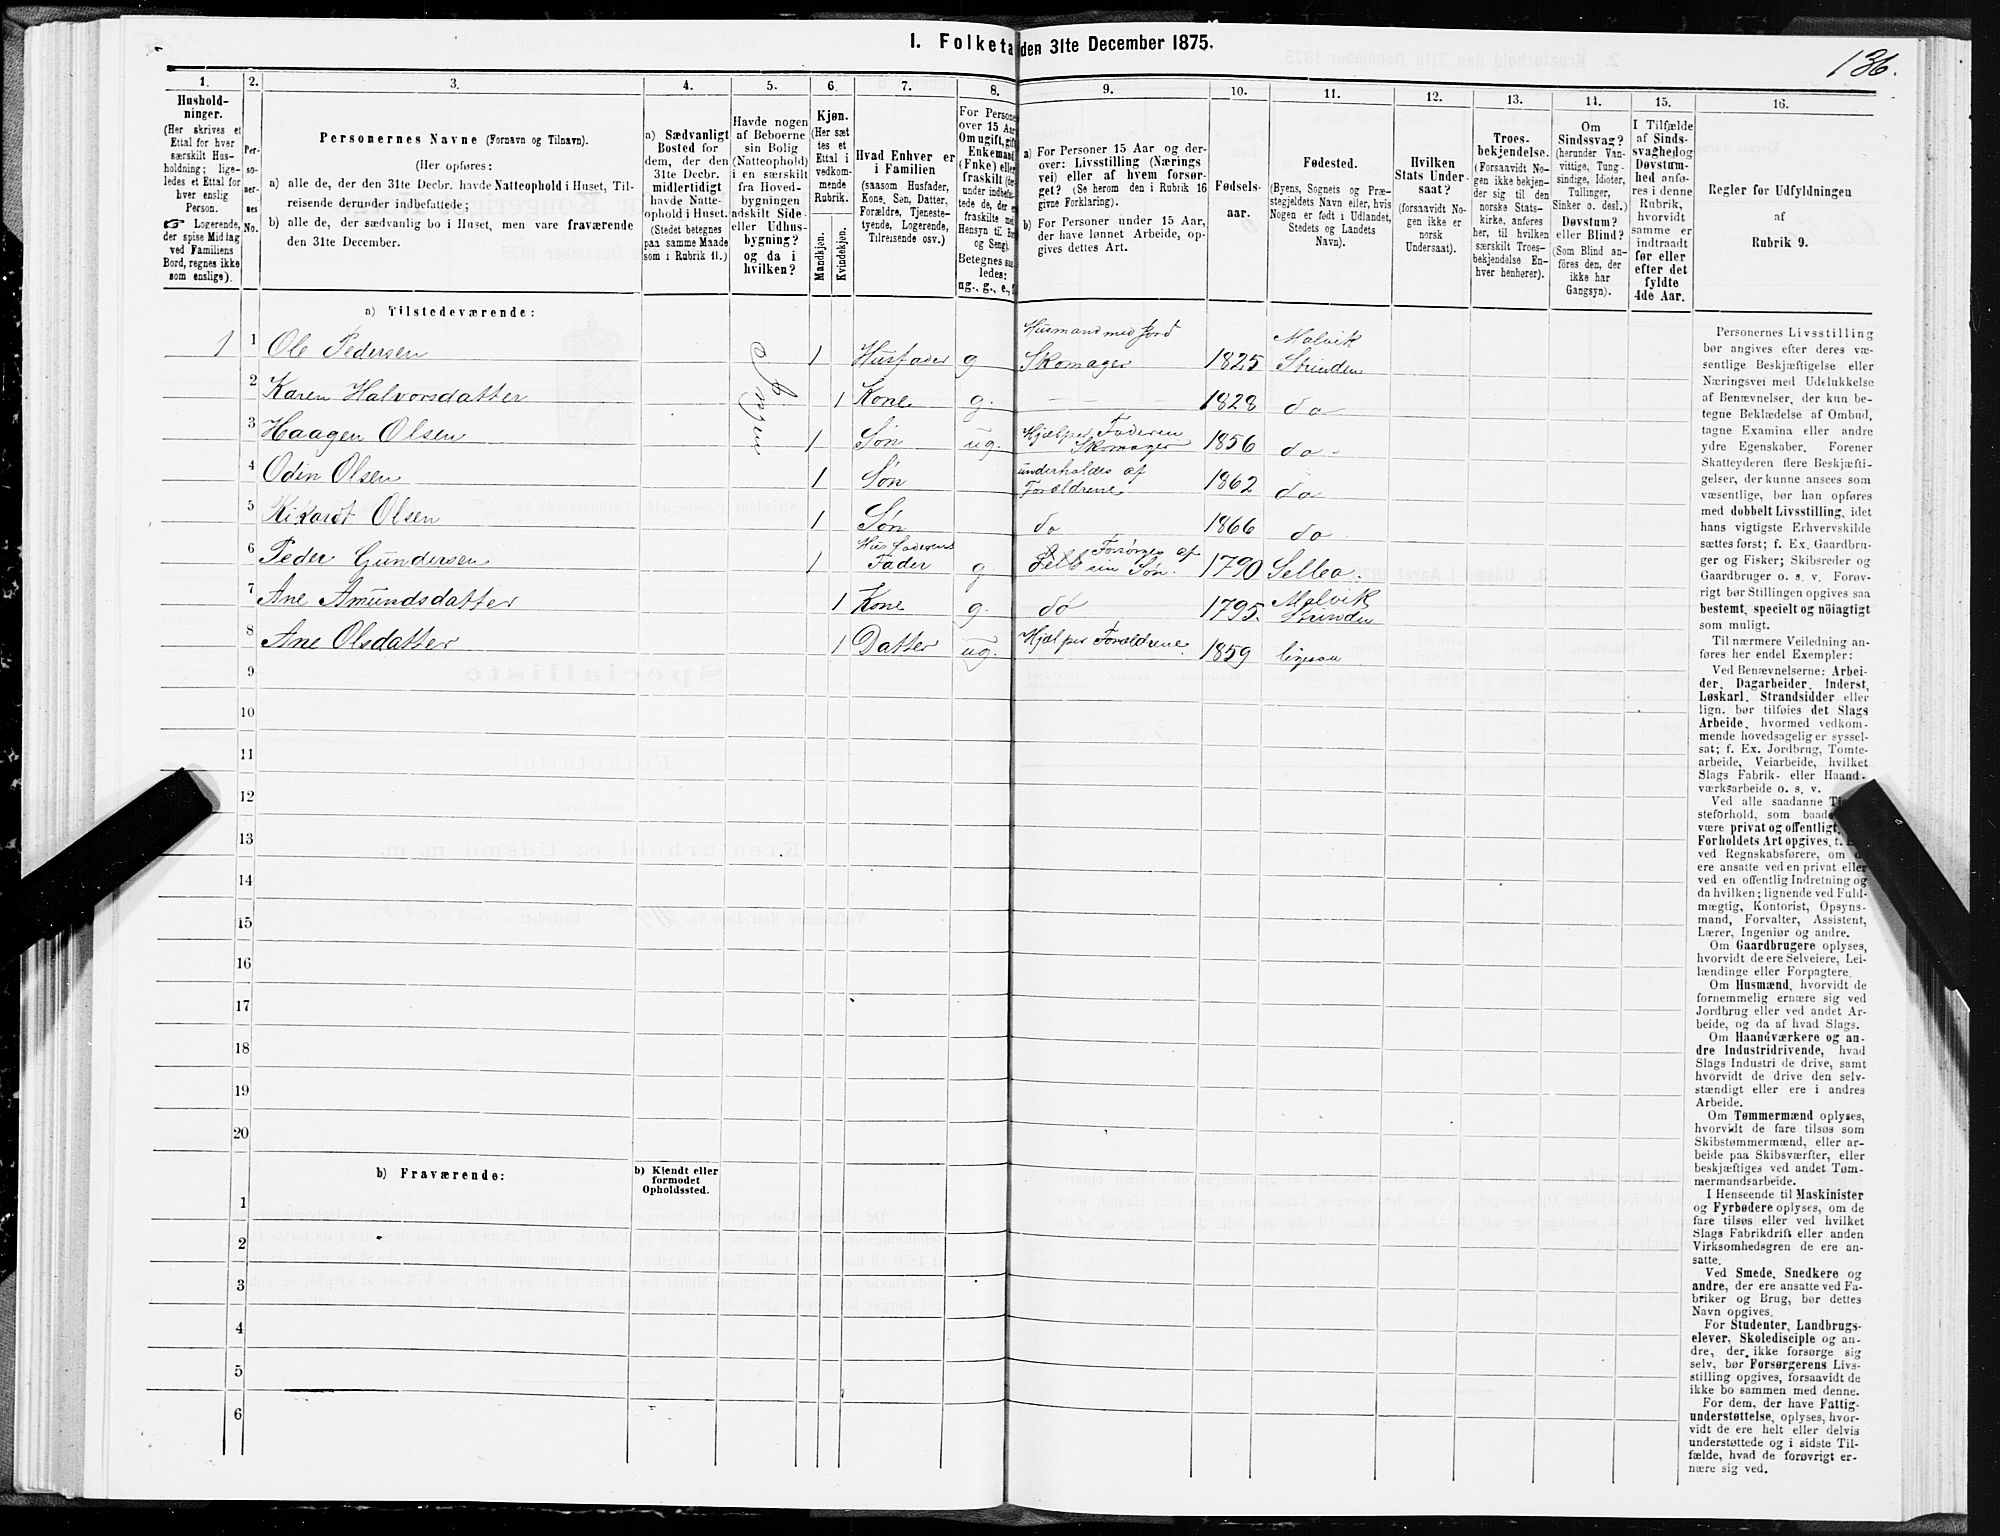 I. Folketa den 31te December 1875.
136.
1. 2. 3. 4. 5. 6. 7. 8. 9. 10. 11. 12. 13. 14. 15. 16.
Hushold-
ninger.
(Her skrives et
Ettal for hver
særskilt Hus-
holdning; lige-
ledes et Ettal for
hver enslig
Person.
☞ Logerende,
der spise Middag
ved Familiens
Bord, regnes ikke
som enslige).
Per-
so-
ner-
nes
No.
Personernes Navne (Fornavn og Tilnavn).
(Her opføres:
a) alle de, der den 31te Decbr. havde Natteophold i Huset, Til-
reisende derunder indbefattede;
b) alle de, der sædvanlig bo i Huset, men vare fraværende
den 31te December.
a) Sædvanligt
Bosted for
dem, der den
31te Decbr.
midlertidigt
havde Natte-
ophold i Huset.
(Stedet betegnes
paa samme Maade
som i Rubrik 11.)
Havde nogen
af Beboerne
sin Bolig
(Natteophold)
i en særskilt
fra Hoved-
bygningen
adskilt Side-
eller Udhus-
bygning?
og da i
hvilken?
Kjøn.
(Her sæt
tes et
Ettal i
vedkom-
mende
Rubrik.
Mandkjøn.
Kvindekjøn.
Hvad Enhver er
i Familien
(saasom Husfader,
Kone, Søn, Datter,
Forældre, Tjeneste-
tyende, Logerende,
Tilreisende osv.)
For Persone
over 15 Aar
Om ugift, gift
Enkemand
(Enke) eller
fraskilt (der-
under indbefat-
tede de, der e
fraskilte med
Hensyn til Bo
og Seng).
Betegnes saa
ledes:
ug., g., e., f
a) For Personer 15 Aar og der-
over: Livsstilling (Nærings
vei) eller af hvem forsør-
get? (Se herom den i Rubrik 16
givne Forklaring).
b) For Personer under 15 Aar,
der have lønnet Arbeide, op-
gives dettes Art.
Fødsels-
aar.
Fødested.
(Byens, Sognets og Præ-
stegjeldets Navn eller, hvis
Nogen er født i Udlandet,
Stedets og Landets
Navn).
Hvilken
Stats Under-
saat?
(forsaavidt No-
gen ikke er
norsk
Undersaat).
Troes-
bekjendelse.
(Forsaavidt No-
gen ikke bekjen-
der sig til den
norske Stats-
kirke, anføres
her, til hvilken
særskilt Troes-
bekjendelse En-
hver henhører).
Om
Sindssvag?
(herunder Van-
vittige, Tung-
sindige, Idioter,
Tullinger,
Sinker o. desl.)
Døvstum?
eller Blind?
(Som Blind an-
føres den, der
ikke har
Gangsyn).
I Tilfælde
af Sinds-
svaghed og
Døvstum-
hed anføres
i denne
Rubrik,
hvorvidt
samme er
indtraadt
før eller
efter det
fyldte
4de Aar.
Regler for Udfyldningen
af
Rubrik 9.
a) Tilstedeværende:
1 1 Ole Pedersen 1 Husfader g Husmand med Jord Skomager 1825 Malvik Strinden
2 Karen Halvorsdatter 1 Kone g. — — 1828 do
3 Haagen Olsen 1 Søn ug. Hjælper Faderen Skomager 1856 do
4 Odin Olsen 1 Søn underholdes af Forældrene 1862 do
5 Rikardt Olsen 1 Søn do 1866 do
6 Peder Gundersen 1 Husfaderens Fader g Forsørges af sin Søn. 1790 Selbo.
7 Ane Amundsdatter 1 Kone g. do 1795. Malvik Strinden
8 Ane Olsdatter 1 Datter ug. Hjælper Forældrene. 1859 ligesaa
Nogen
9
10
11
12
13
14
15
16
17
18
19
20
b) Fraværende:
b) Kjendt eller
formodet
Opholdssted.
1
2
3
4
5
6
Personernes Livsstilling
bør angives efter deres væ-
sentlige Beskjæftigelse eller
Næringsvei med Udelukkelse
af Benævnelser, der kun be-
tegne Beklædelse af Ombud,
tagne Examina eller andre
ydre Egenskaber. Forener
Skatteyderen flere Beskjæfti-
gelser, der kunne ansees som
væsentlige, bør han opføres
med dobbelt Livsstilling, idet
hans vigtigste Erhvervskilde
sættes først; f. Ex. Gaardbru-
ger og Fisker; Skibsreder og
Gaardbruger o. s. v. Forøv-
rigt bør Stillingen opgives saa
bestemt, specielt og nöiagtigt
som muligt.
Til nærmere Veiledning an-
føres her endel Exempler:
Ved Benævnelserne: Arbei-
der, Dagarbeider, Inderst,
Løskarl, Strandsidder eller
lign. bør tilføies det Slags
Arbeide, hvormed vedkom-
mende hovedsagelig er syssel-
sat; f. Ex. Jordbrug, Tomte-
arbeide, Veiarbeide, hvilket
Slags Fabrik- eller Haand-
værksarbeide o. s. v.
Ved alle saadanne
steforhold, som baade
være privat og offentligt,
Forholdets Art opgives, t.
ved Regnskabsførere, om
ere ansatte ved en privat eller
ved en offentlig Indretning og
da hvilken; lignende ved Fuld-
mægtig, Kontorist, Opsyns-
mand, Forvalter, Assistent,
Lærer, Ingeniør og andre.
Om Gaardbrugere oplyses,
hvorvidt de ere Selveiere, Lei-
lændinge eller Forpagtere.
Om Husmænd, hvorvidt de
fornemmelig ernære sig ved
Jordbrug eller ved andet Ar-
beide, og da af hvad Slags.
Om Haandværkere og an-
dre Industridrivende, hvad
Slags Industri de drive, samt
hvorvidt de drive den selv-
stændigt eller ere i andres
Arbeide.
Om Tømmermænd oplyses,
hvorvidt de fare tilsøs som
Skibstømmermænd, eller ar-
beide paa Skibsværfter, eller
beskjæftiges ved andet Tøm-
mermandsarbeide.
I Henseende til Maskinister
og Fyrbødere oplyses, om de
fare tilsøs eller ved hvilket
Slags Fabrikdrift eller anden
Virksomhedsgren de ere an-
satte.
Ved Smede, Snedkere og
andre, der ere ansatte ved Fa-
briker og Brug, bør dettes
Navn opgives.
For Studenter, Landbrugs-
elever, Skoledisciple og an-
dre, der ikke forsørge sig
selv, bør Forsørgerens Livs-
stilling opgives, forsaavidt de
ikke bo sammen med denne.
For dem, der have Fattig-
understøttelse, oplyses, hvor-
vidt de ere helt eller delvis
understøttede og i sidste Til-
fælde, hvad de forøvrigt er-
nære sig ved.